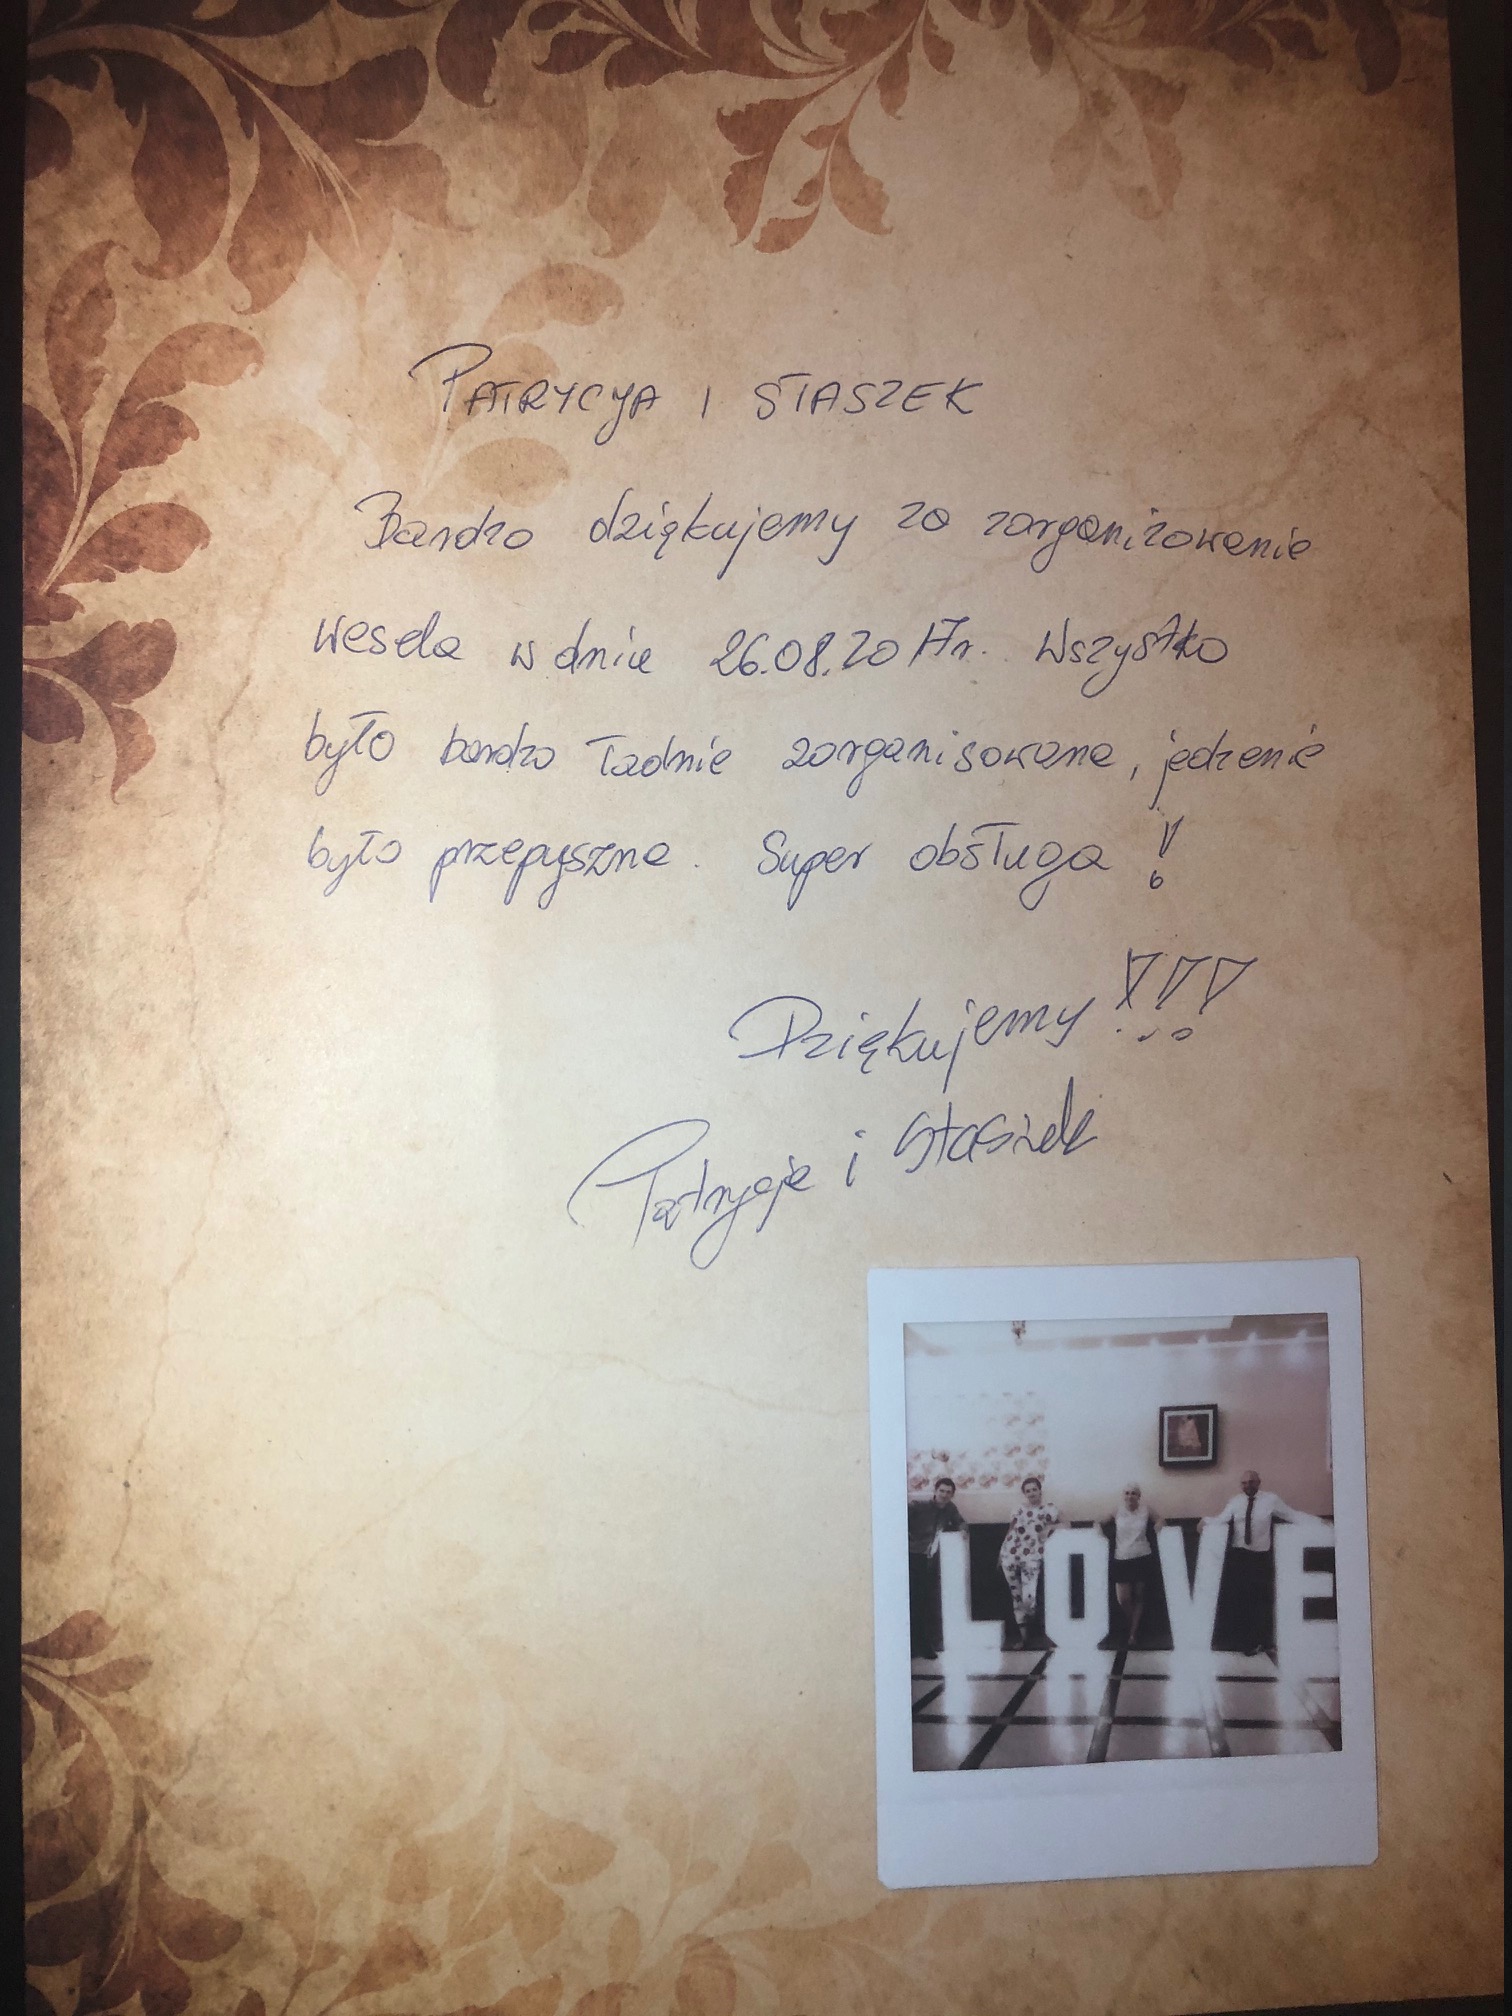 PATRYCJA I STASZEK
Bardzo dziękujemy za zorganizowanie
wesela w dniu 26.08.2017r. Wszystko
było bardzo ładnie zorganisowane, jedzenie
było przepyszne. Super obsługa!
Dziękujemy!!!
Patrycja i Staszek
LOVE